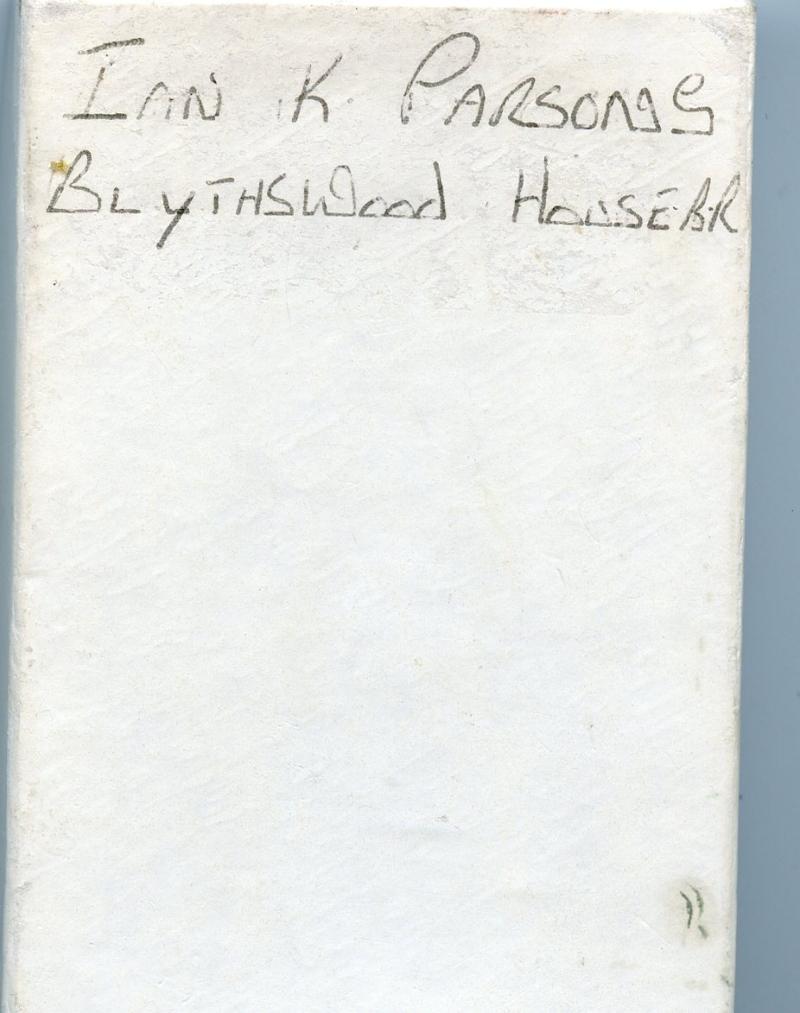 IAN K. PARSONS
BLYTHSWOOD HOUSE B.R